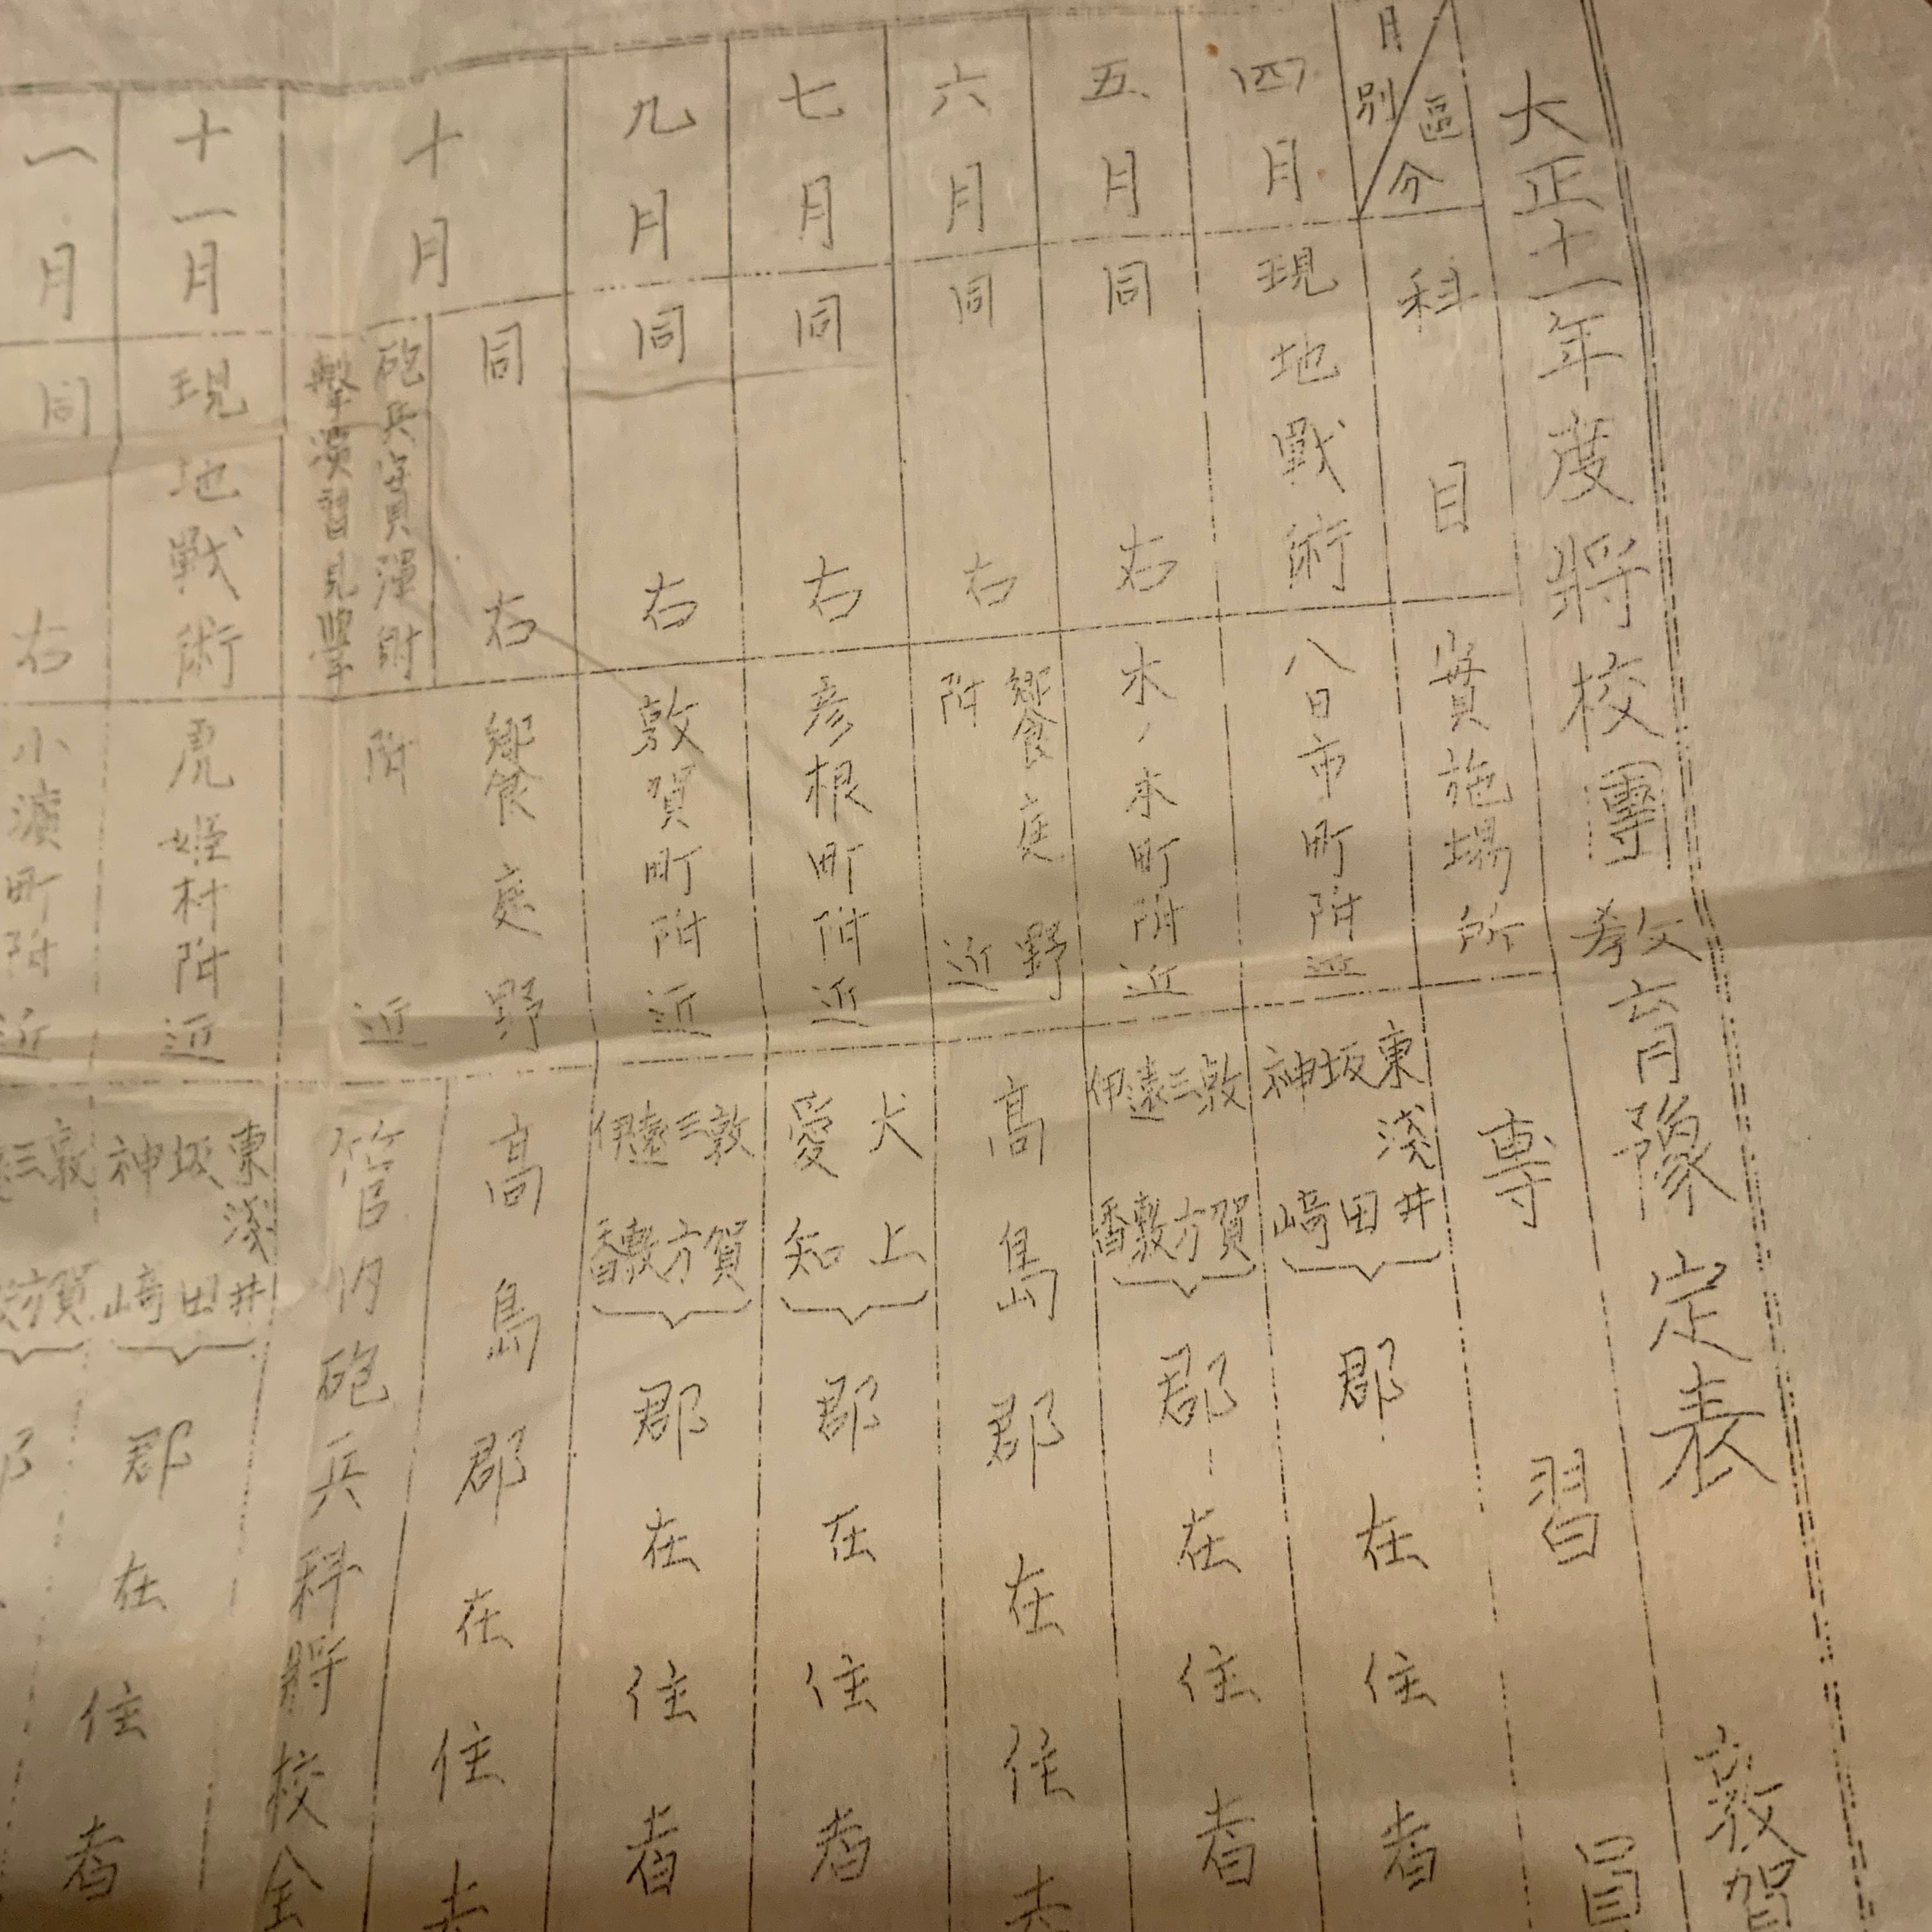 大正十一年度將校團教育豫定表
敦賀
月別 區分
科目
實施場所
專習員
四月
現地戰術
八日市町附近
東淺井
坂田
神崎
郡在住者
五月
同右
木ノ本町附近
敦賀
三方
遠敷
伊香
郡在住者
六月
同右
饗庭野
附近
高島郡在住
七月
同右
彦根町附近
犬上
愛知
郡在住者
九月
同右
敦賀町附近
敦賀
三方
遠敷
伊香
郡在住者
十月
同右
饗庭野
附近
高島郡在住
砲兵實彈射
擊演習見學
管内砲兵科將校全
十一月
現地戰術
虎姫村附近
東淺井
坂田
神崎
郡在住者
一月
同右
小濱町附近
敦賀
三方